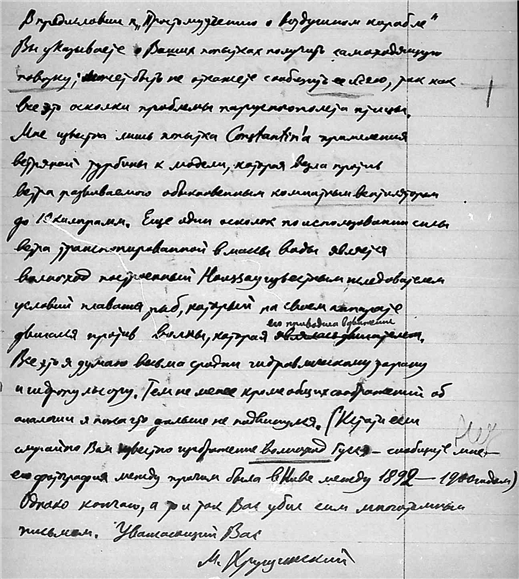 В предисловии к „Простому учению о воздушном корабле“
Вы указываете о Ваших попытках получить самоходящую
повозку; может быть не откажете сообщить ее идею, так как
все это осколки проблемы парусного полета птицы.
Мне известна лишь попытка Constantin'а применения
ветряной турбины к модели, которая везла против
ветра развиваемого обыкновенным комнатным вентилятором
до 15 килограмм. Еще один осколок по использованию силы
ветра транспонированной в массы воды является
волноход построенный известным исследователем
условий плавания рыб, который на своем аппарате
двигался против волны, которая его приводила в движение
Все это я думаю весьма сродни гидравлическому тарану
и гидропульсору. Тем не менее кроме общих соображений об
аналогии я пока что дальше не подвинулся. (Кстати если
случайно Вам известно изображение волноход – сообщите мне –
его фотография между прочим была в Ниве между 1892 – 1900 годом)
Однако кончаю, а то и так Вас убил сим многотемным
письмом. Уважающий Вас
М.